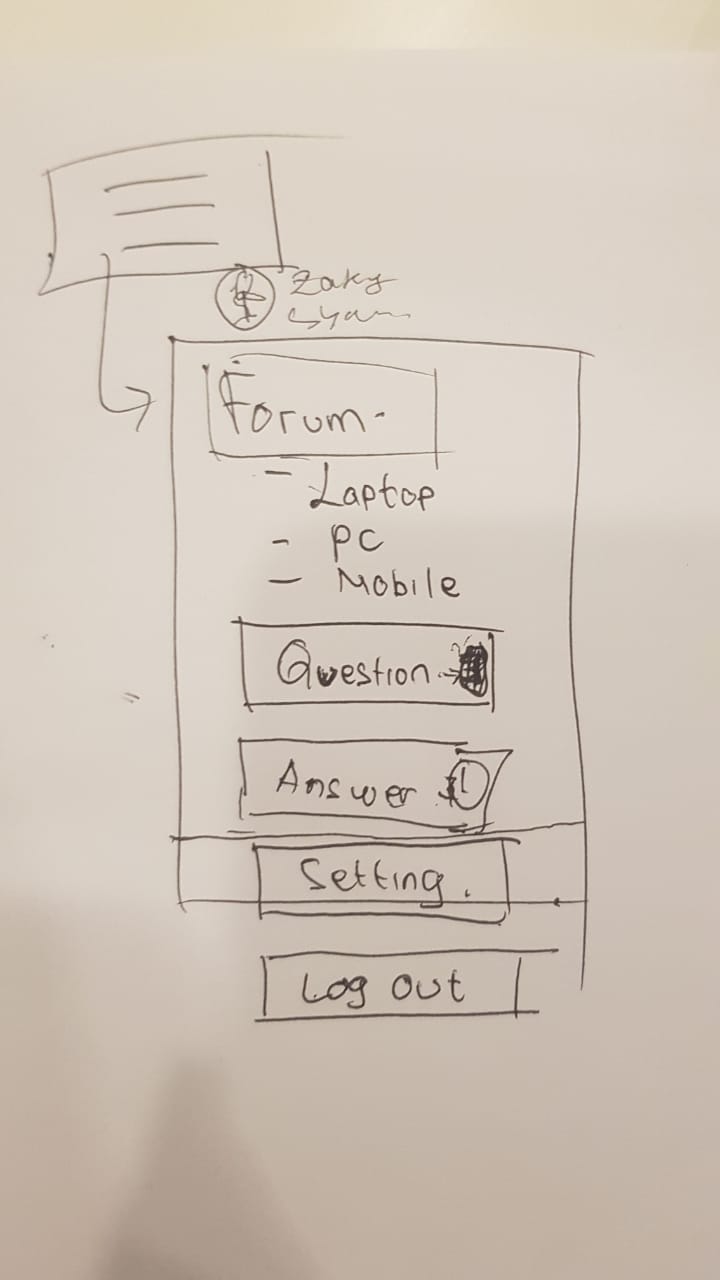 Zaky
Forum
- Laptop
- PC
- Mobile
Question
Answer
Setting.
Log out